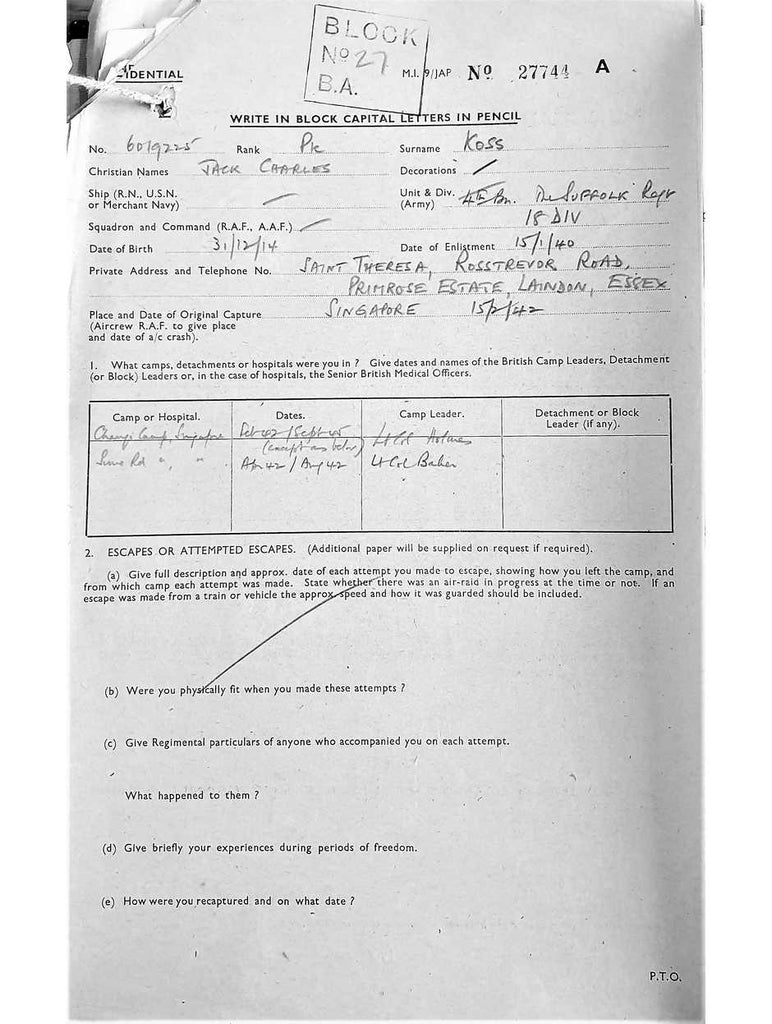 BLOCK
No 27
B.A.
IDENTIAL
M.I. 9/JAP No 27744 A
WRITE IN BLOCK CAPITAL LETTERS IN PENCIL
No. 6019225 Rank Pte Surname KOSS
Christian Names JACK CHARLES Decorations /
Ship (R.N., U.S.N.
or Merchant Navy)
Unit & Div. 4th Bn. The SUFFOLK Regt
(Army) 18 DIV
Squadron and Command (R.A.F., A.A.F.)
Date of Birth 31/12/14 Date of Enlistment 15/1/40
Private Address and Telephone No. SAINT THERESA, ROSSTREVOR ROAD,
PRIMROSE ESTATE, LAINDON, ESSEX
Place and Date of Original Capture SINGAPORE 15/2/42
(Aircrew R.A.F. to give place
and date of a/c crash).
1. What camps, detachments or hospitals were you in ? Give dates and names of the British Camp Leaders, Detachment
(or Block) Leaders or, in the case of hospitals, the Senior British Medical Officers.
Camp or Hospital. Dates. Camp Leader. Detachment or Block
Leader (if any).
Changi Camp, Singapore Feb 42 / Sept 45 Lt Col Holmes
(except as below)
Sime Rd " " Apr 42 / Aug 42 Lt Col Baker
2. ESCAPES OR ATTEMPTED ESCAPES. (Additional paper will be supplied on request if required).
(a) Give full description and approx. date of each attempt you made to escape, showing how you left the camp, and
from which camp each attempt was made. State whether there was an air-raid in progress at the time or not. If an
escape was made from a train or vehicle the approx. speed and how it was guarded should be included.
(b) Were you physically fit when you made these attempts ?
(c) Give Regimental particulars of anyone who accompanied you on each attempt.
What happened to them ?
(d) Give briefly your experiences during periods of freedom.
(e) How were you recaptured and on what date ?
P.T.O.